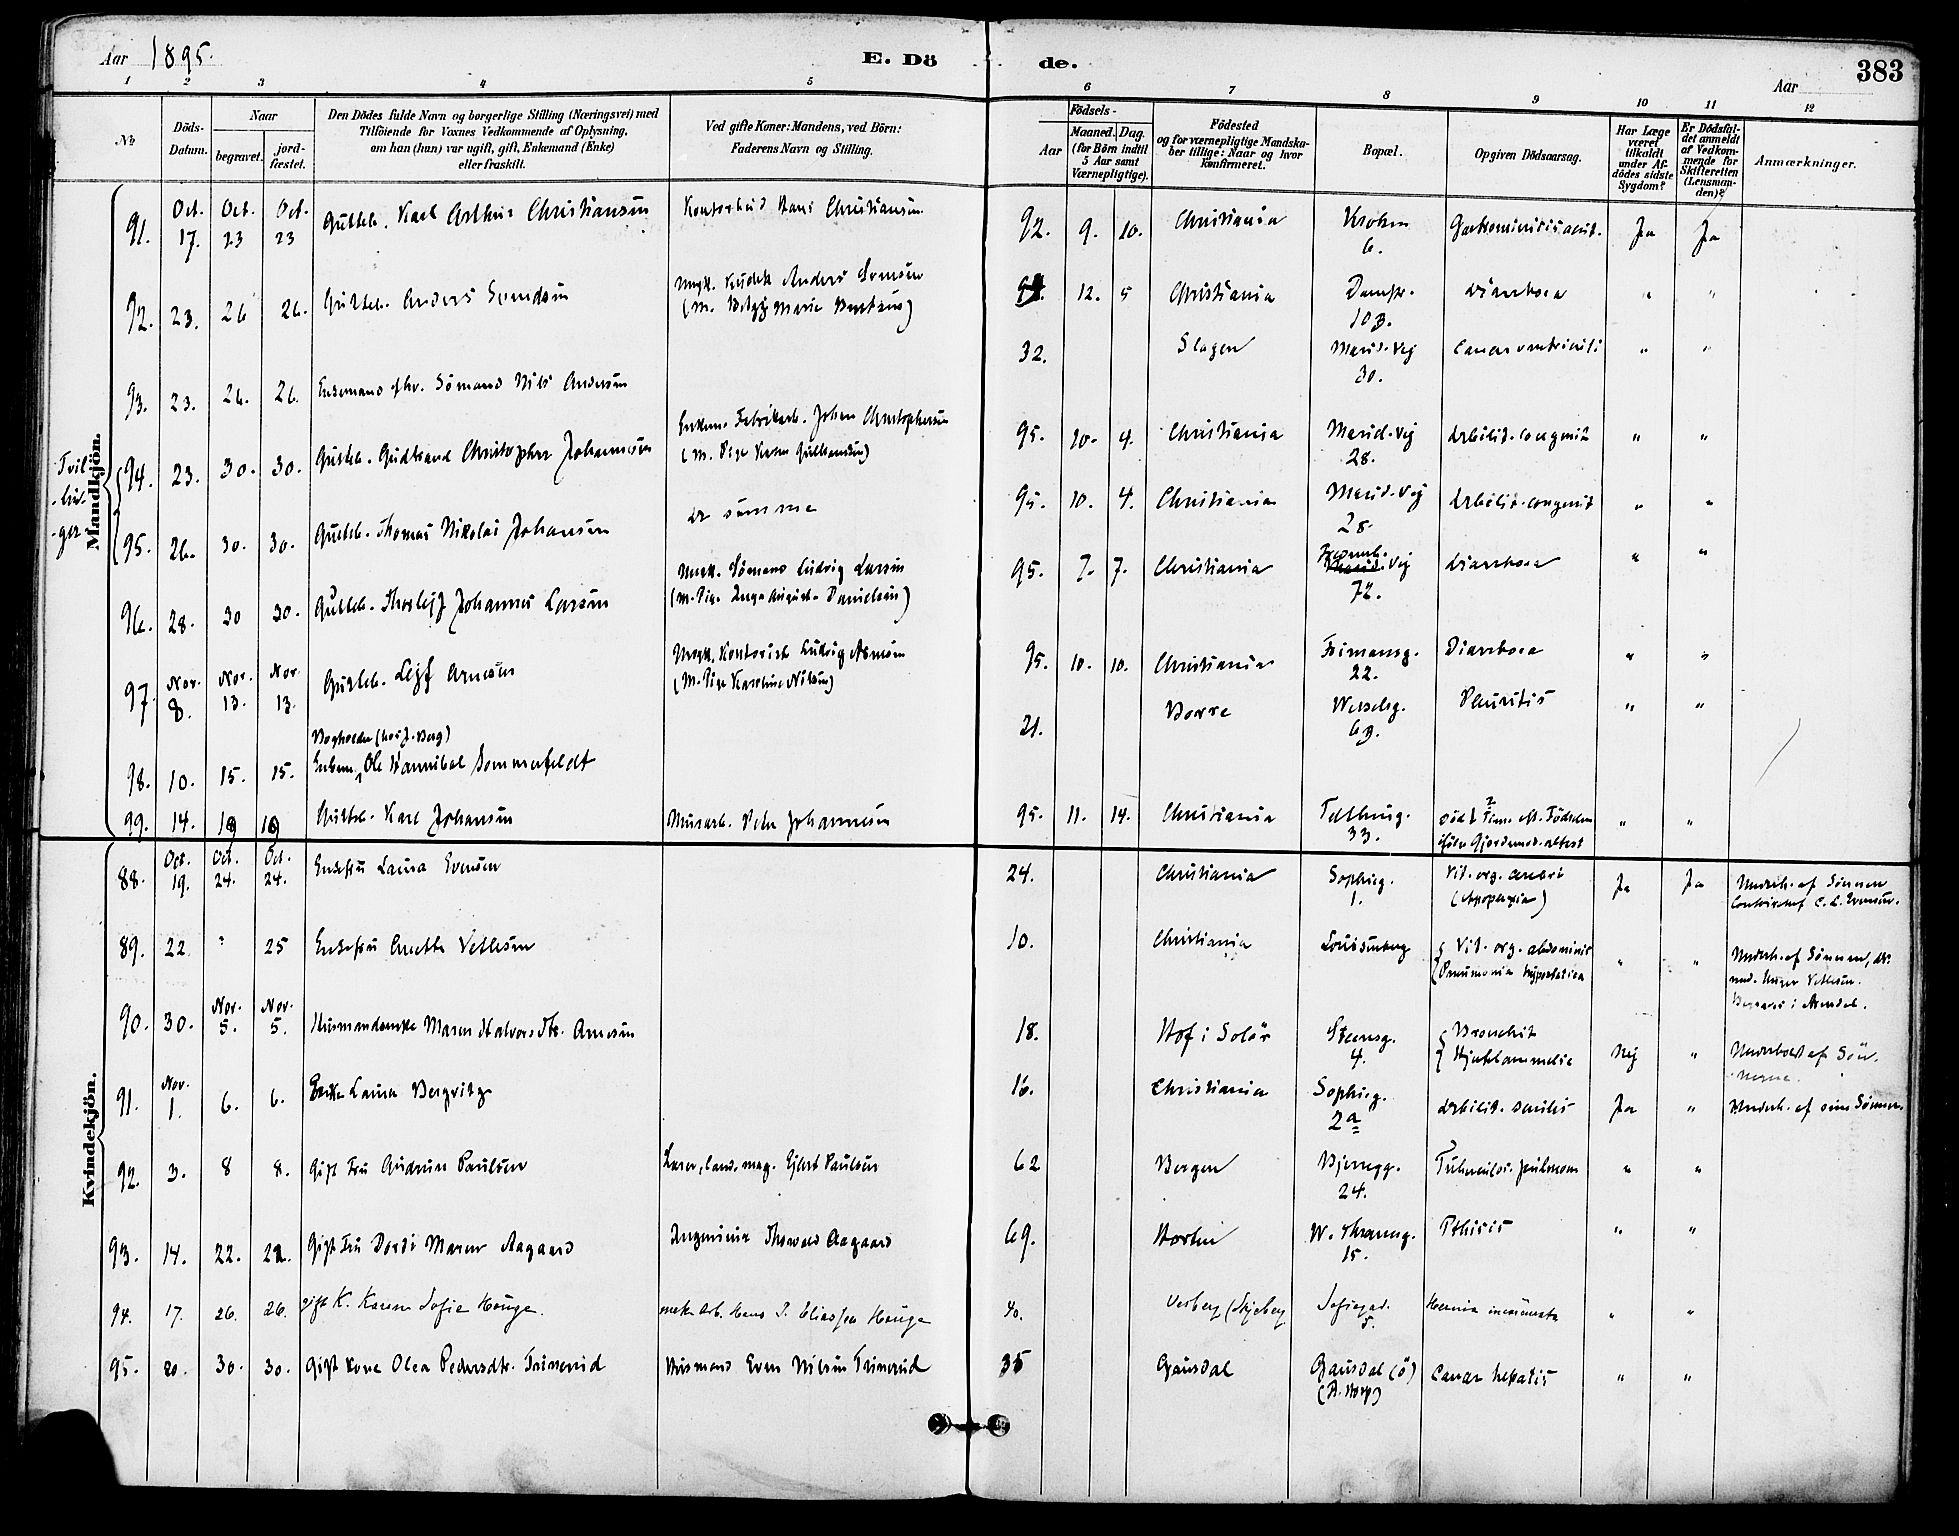 Aar 1895.
E. Döde.
383
Aar
1 2 3 4 5 6 7 8 9 10 11 12
No
Döds-Datum.
Naar
begravet.
jord-fæstet.
Den Dödes fulde Navn og borgerlige Stilling (Næringsvei) med
Tilföiende for Voxnes Vedkommende af Oplysning,
om han (hun) var ugift, gift, Enkemand (Enke)
eller fraskilt.
Ved gifte Koner: Mandens, ved Börn:
Faderens Navn og Stilling.
Födsels-
Aar
Maaned. Dag.
(for Börn indtil
5 Aar samt
Værnepligtige).
Födested
og for værnepligtige Mandska-
ber tillige: Naar og hvor
konfirmeret.
Bopæl.
Opgiven Dödsaarsag.
Har Læge
været
tilkaldt
under Af-
dödes sidste
Sygdom?
Er Dödsfal-
det anmeldt
af Vedkom-
mende for
Skifteretten
(Lensman-
den)?
Anmærkninger.
Mandkjön.
Tvil-
-lin-
-ger
91. Oct. 17. Oct. 23 Oct. 23 Gutteb. Karl Arthur Christiansen Kontorbud Hans Christiansen 92. 9. 10. Christiania Krohsg. 6. Ja Ja
92. 23. 26 26. Gutteb. Anders Svendsen Anders Svensen 12. 5 Christiania Damstr. 10 B. Diarrhoea " "
93. 23. 26. 26. Enkemand fhv. Sömand Nils Andersen 32. Slagen Marid. Vej 30. Cancer ventriculi " "
94. 23. 30. 30. Gutteb. Gudbrand Christopher Johannesen Enkem. Fabrikarb. Johan Christophersen (M. Pige Karen Gulbrandsen) 95. 10. 4. Christiania Marid. Vej 28. debilit. congenit " "
95. 26. 30. 30. Gutteb. Thomas Nikolai Johansen de samme 95. 10. 4. Christiania Marid. Vej 28. debilit. congenit " "
96. 28. 30 30. Gutteb. Thorleif Johannes Larsen Ungk. Sömand Ludvig Larsen (M. Pige Inga August. Danielsen) 95. 7. 7. Christiania Vej 72. diarrhoea " "
97. Nov. 8. Nov. 13. Nov. 13. Gutteb. Leif Arnesen Ungk. Kontorist Ludvig Arnesen (M. Pige Karoline Nilsen) 95. 10. 10. Christiania Frimansg. 22. Diarrhoea " "
98. 10. 15. 15. Bogholder (hos J. Berg) Ole Hannibal Sommerfeldt 21. Borre Wesselsg. 6 B. Pleuritis " "
99. 14. Gutteb. Karl Johansen Murarb. Peter Johannesen 95. 11. 14. Christiania Telthusg. 33. död 2 Tim. eft. Födselen Gjordemod. attest " "
Kvindekjön.
88. Oct. 19. Oct. 24. Oct. 24. Enkefru Laura Evensen 24. Christiania Sophieg. 1. Vit. org. cerebri (Apoplexia) Ja Ja Underh. af Sönnen C. L. Evensen.
89. 22 ? 25 Enkefru Anette Vettesen 10. Christiania Louisenberg Vit. org. abdominis Pneumonia hypostatica " " Underh. af Sönnen, i Arendal.
90. 30. Nov. 5. Nov. 5. Husmandsenke Maren Halvorsdtr. Arnesen 18. Hof i Solör Steensg. 4. Bronchit Hjertelammelse Nej " Underholdt af Sön-nerne.
91. Nov. 1. 6. 6. Enke Laura Bergwitz 16. Christiania Sophieg. 2a debilit. senilis Ja " Underh. af sine Sönner.
92. 3. 8 8. Gift Fru Gudrun Paulsen Lærer, cand. mag. Ejlert Paulsen 62 Bergen Bjerregg. 24. Tuberculos. pulmon " "
93. 14. 22. 22. Gift Fru Dordi Maren Aagaard Ingeniör Thorvald Aagaard 69. Horten W. Thranesg. 15. Pthisis " "
94. 17. 26. 26. gift K. Karen Sofie Hauge. Hans P. Eliassen Hauge 40. (Skjeberg Sofiegad. 5. Hernia incarcerata " "
95. 20. 30. 30. Gift Kone Olea Pedersdtr. Trinerud Husmand Even Nilsen Trinerud 35 Gausdal Gausdal (ö) Cancer hepatis " "